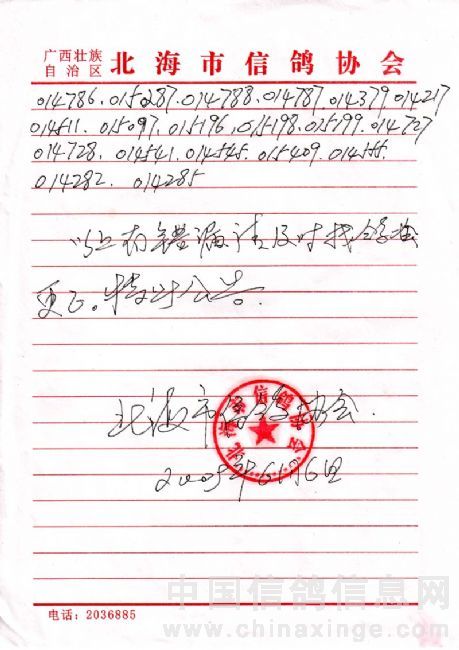 广西壮族
自治区
北海市信鸽协会
014786.015287.014788.014787 014379 014217
014511.015097.015196.015198.015199.014727
014728.014541.014545.015409.014555.
014282. 014285
以上有错漏请及时找鸽会
更正。特此公告.
北海市信鸽协会.
北海市信鸽协会
2005年6月6日
电话:2036885
中国信鸽信息网
www.chinaxinge.com